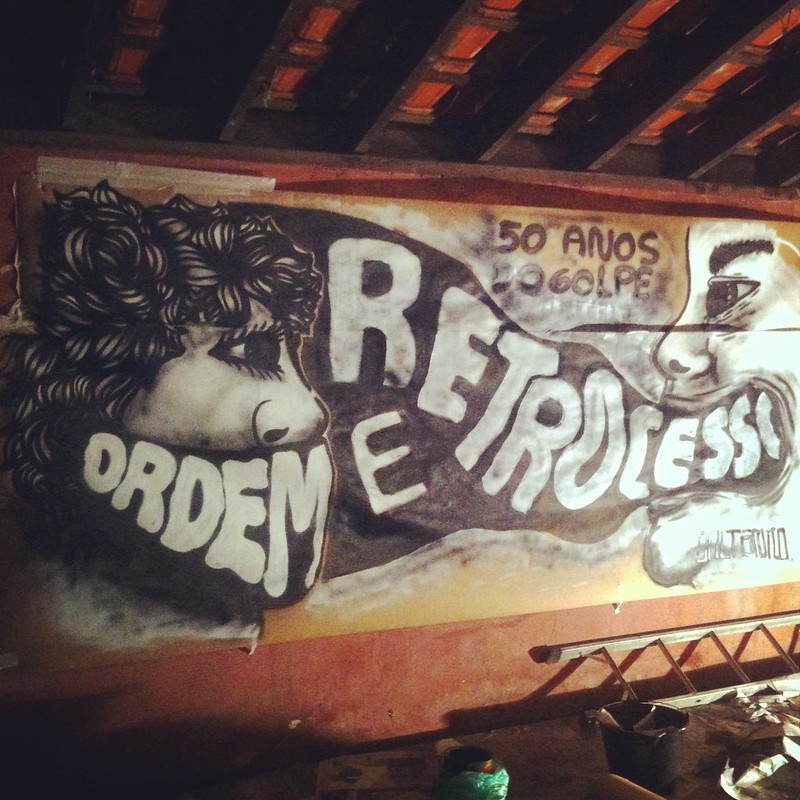 50 ANOS
DO GOLPE
ORDEM
E
RETROCESSO